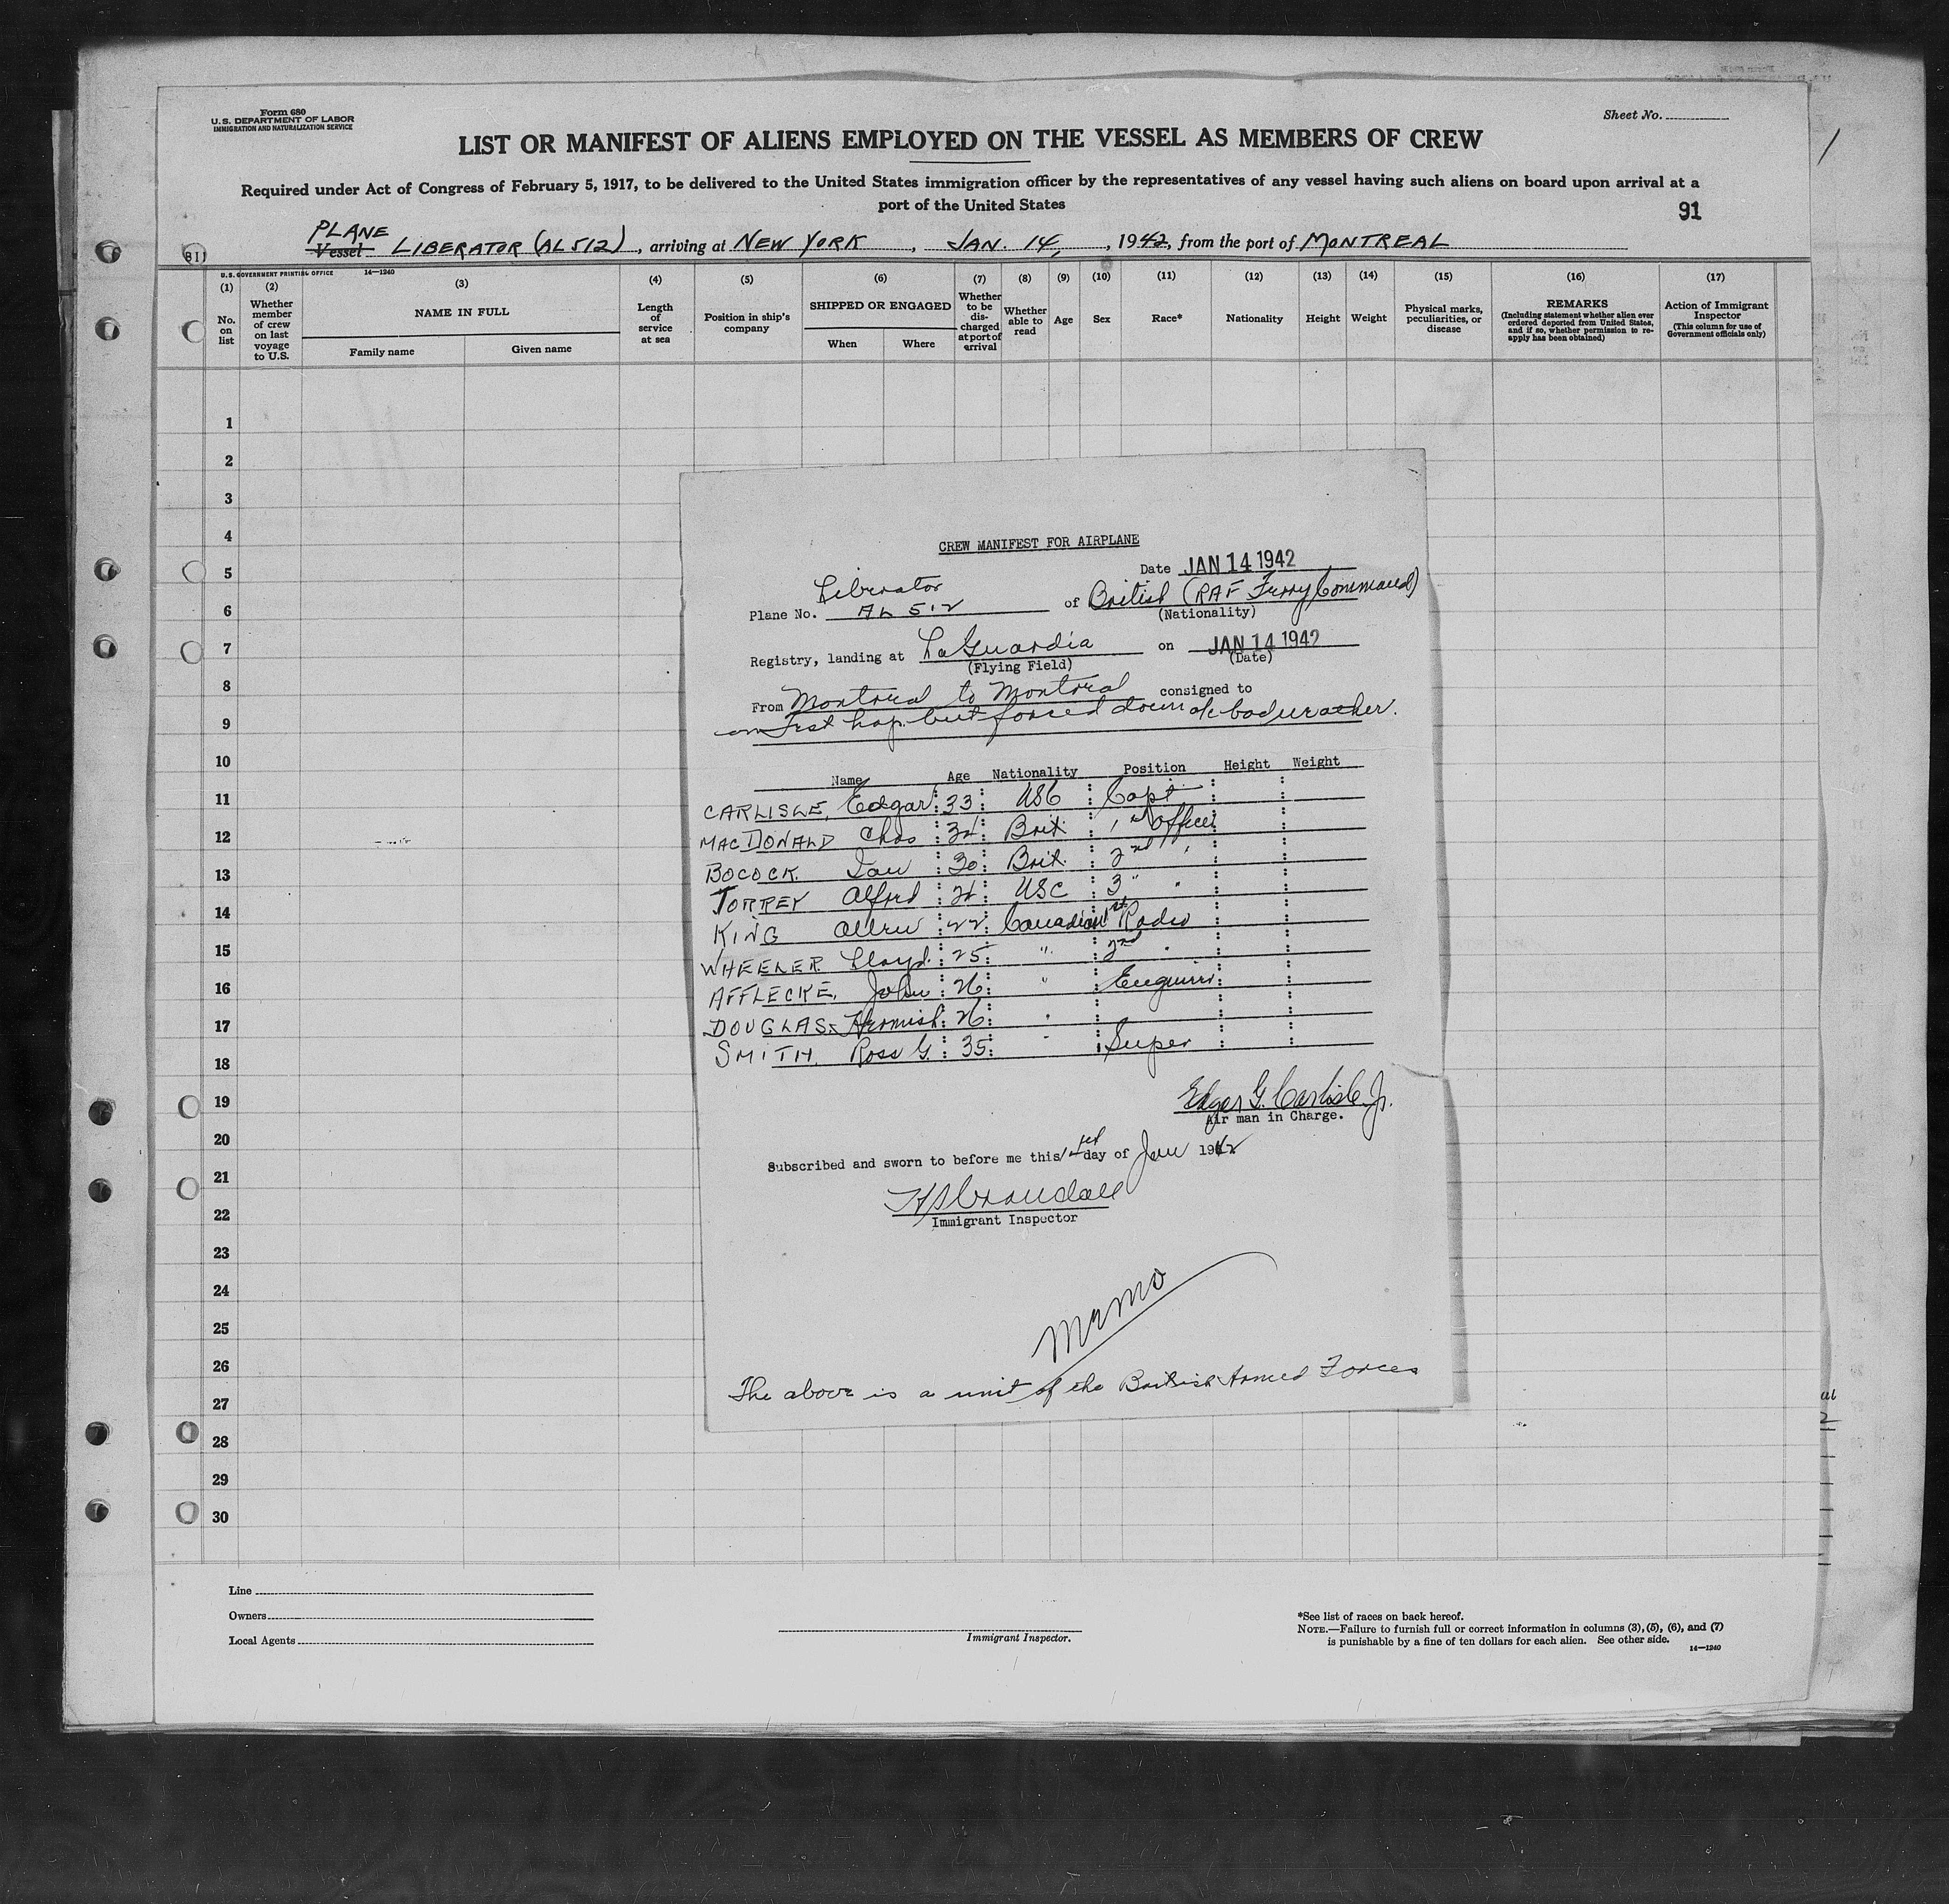 Form 680
U.S. DEPARTMENT OF LABOR
IMMIGRATION AND NATURALIZATION SERVICE
Sheet No.
LIST OR MANIFEST OF ALIENS EMPLOYED ON THE VESSEL AS MEMBERS OF CREW
Required under Act of Congress of February 5, 1917, to be delivered to the United States immigration officer by the representatives of any vessel having such aliens on board upon arrival at a
port of the United States
91
PLANE
Vessel LIBERATOR (AL512), arriving at NEW YORK, JAN. 14, 1942, from the port of MONTREAL
U.S. GOVERNMENT PRINTING OFFICE 14—1240
(1) No. on list
(2) Whether member of crew on last voyage to U.S.
(3) NAME IN FULL
Family name Given name
(4) Length of service at sea
(5) Position in ship's company
(6) SHIPPED OR ENGAGED
When Where
(7) Whether to be discharged at port of arrival
(8) Whether able to read
(9) Age
(10) Sex
(11) Race*
(12) Nationality
(13) Height
(14) Weight
(15) Physical marks, peculiarities, or disease
(16) REMARKS
(Including statement whether alien ever ordered deported from United States, and if so, whether permission to re-apply has been obtained)
(17) Action of Immigrant Inspector
(This column for use of Government officials only)
1
2
3
4
5
6
7
8
9
10
11
12
13
14
15
16
17
18
19
20
21
22
23
24
25
26
27
28
29
30
CREW MANIFEST FOR AIRPLANE
Date JAN 14 1942
Liberator
Plane No. AL 512 of British (RAF Ferry Command)
(Nationality)
Registry, landing at LaGuardia on JAN 14 1942
(Flying Field) (Date)
From Montreal to Montreal consigned to
on test hop but forced down a/c bad weather.
Name Age Nationality Position Height Weight
CARLISLE, Edgar 33 USC Capt
MACDONALD Chas 34 Brit 1st Officer
BOCOCK Ian 30 Brit. 2nd "
TORREY Alfred 24 USC 3 " "
KING Allen 22 Canadian 1st Radio
WHEELER Lloyd 25 " 2nd "
AFFLECKE, John 26 "
DOUGLAS 26 "
SMITH Ross G. 35 " Super
Edgar G. Carlisle Jr.
Air man in Charge.
Subscribed and sworn to before me this day of Jan 1942
Crandall
Immigrant Inspector
Memo
The above is a unit of the British Armed Forces
Line
Owners
Local Agents
Immigrant Inspector.
*See list of races on back hereof.
NOTE.—Failure to furnish full or correct information in columns (3), (5), (6), and (7)
is punishable by a fine of ten dollars for each alien. See other side.
14—1240